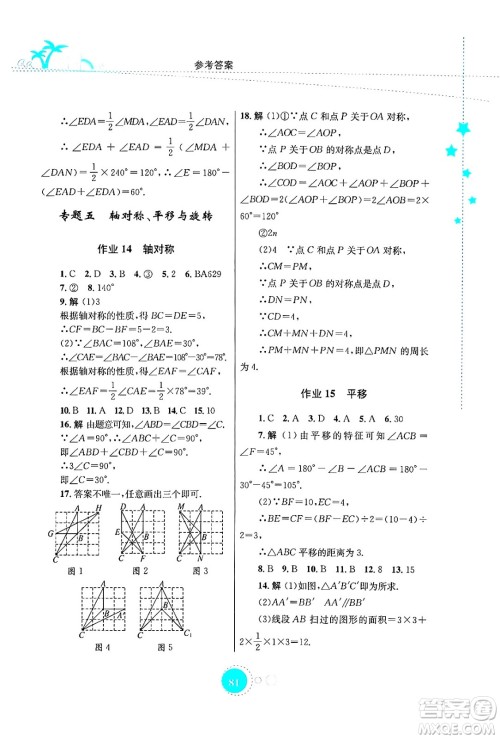 参考答案
∴∠EDA=1/2∠MDA,∴∠EDA=1/2∠DAN,
∴∠EDA + ∠EDA = 1/2(∠MDA + ∠
DAN)=1/2×240°=120°,∴∠E=180°-
(∠EAD+∠EAD)=60°.
专题五 轴对称、平移与旋转
作业14 轴对称
1. C 2. D 3. B 4. ③ 5. 2 6. BA629
7. ② 8. 140°
9. 解 (1)3
根据轴对称的性质,得BC=DE=5,
∴CF=BC-BF=5-2=3.
(2)∵∠BAC=76°,∠CAD=154°,
∴∠BAD=∠CAD-∠BAC=78°.
根据轴对称的性质,得∠BAC=∠DAE,
∴∠BAE=∠CAD,∠EAF=∠CAF,
∴∠EAF=1/2∠CAE=1/2×78°=39°.
10. B 11. A 12. B 13. C 14. 15 15. 10
16. 解 由题意可知,∠ABD=∠CBD=∠C.
∵∠A=90°,∴∠ABD+∠CBD+∠C=90°,
即∠C+∠C+∠C=90°,
∴3∠C=90°,
即∠C=30°.
17. 答案不唯一,任意画出三个即可.
A H
G B
C
图1
A D
B
E
C F
图2
M A
B
C N
图3
A
B A'
C
图4
A
B
C C₁
图5
18. 解 (1)①∵点C和点P关于OA对称,
∴∠AOC=∠AOP,
∵点P关于OB的对称点是点D,
∴∠BOD=∠BOP,
∴∠COD=∠AOC+∠AOP+∠BOP+∠
BOD=2(∠AOP+∠BOP)=2∠AOB=2×
60°=120°
②2n
(2)4 ∵点C和点P关于OA对称,
∴CM=PM,
∵点P关于OB的对称点是点D,
∴DN=PN,
∵CD=4,
∴CM+MN+DN=4,
∴PM+MN+PN=4,即△PMN的周长
为4.
作业15 平移
1. C 2. A 3. D 4. A 5. 6 6. 30
7. 解 (1)由平移的特征可知∠ACB=∠
F=45°,
∴∠BAC=180°-∠B-∠ACB=180°-
30°-45°=105°.
(2)∵BF=BE+EC+CF,BE=CF,
∴BE=1/2(BF-EC)=1/2×(20-14)=3,
∴△ABC平移的距离为3.
8. B 9. D 10. A 11. B 12. 8 13. 15
14. 解 (1)如图,△A'B'C'即为所求.
(2)AA'=BB' AA'∥BB'
(3)线段AB扫过的图形的面积=3×3+
2×1/2×1×3=12.
81
答案圈
MXQE.COM